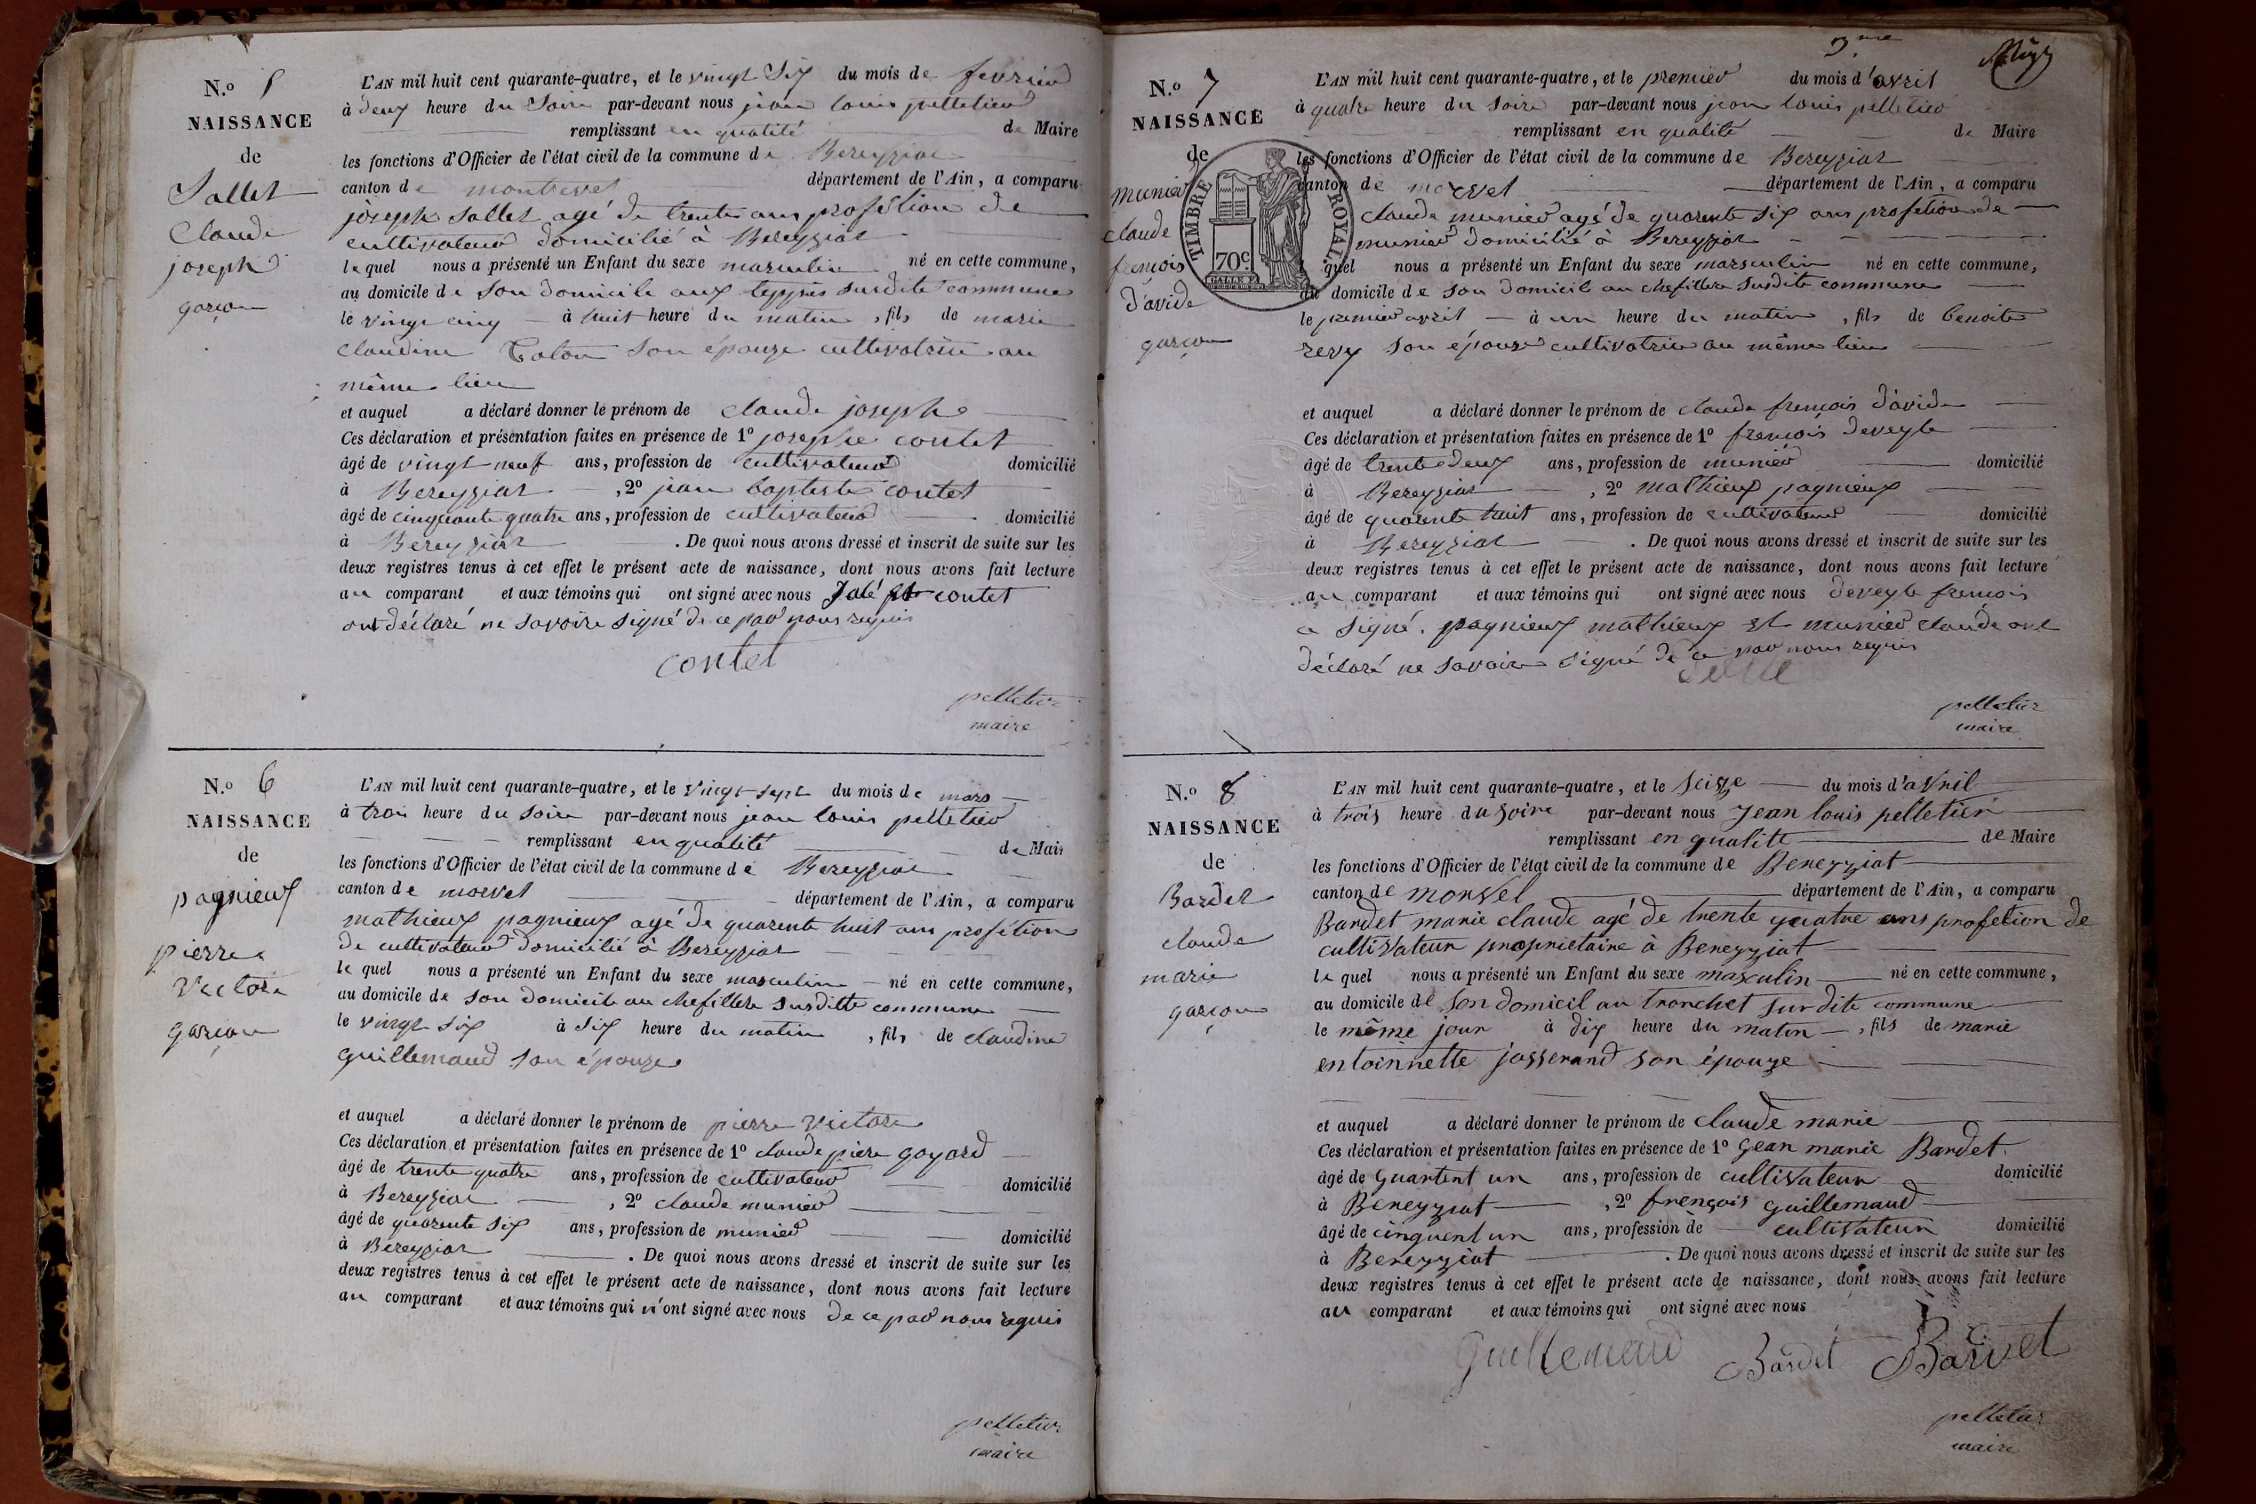 N.o 5
NAISSANCE
de
Sallet
Claude
joseph
garçon
L'AN mil huit cent quarante-quatre, et le vingt six du mois de fevrier
à deux heure du Soire par-devant nous jean louis pelletier
remplissant en qualité de Maire
les fonctions d'Officier de l'état civil de la commune de Bereyziat
canton de montrevel département de l'Ain, a comparu
joseph Sallet agé de trente ans profétion de
cultivateur domicilié à Bereyziat
le quel nous a présenté un Enfant du sexe masculin né en cette commune,
au domicile de son domicile aux susdite commune
le vingt cinq à huit heure du matin, fils de marie
claudine son épouze cultivatrice au
même lieu
et auquel a déclaré donner le prénom de claude joseph
Ces déclaration et présentation faites en présence de 1o josephe contet
âgé de vingt neuf ans, profession de cultivateur domicilié
à Bereyziat, 2o jean baptiste contet
âgé de cinquante quatre ans, profession de cultivateur domicilié
à Bereyziat. De quoi nous avons dressé et inscrit de suite sur les
deux registres tenus à cet effet le présent acte de naissance, dont nous avons fait lecture
au comparant et aux témoins qui ont signé avec nous contet
ont déclaré ne savoire signé de ce par nous requis
contet
pelletier
maire
N.o 6
NAISSANCE
de
pagnieux
pierre
Victore
garçon
L'AN mil huit cent quarante-quatre, et le vingt sept du mois de mars
à trois heure du Soire par-devant nous jean louis pelletier
remplissant en qualité de Maire
les fonctions d'Officier de l'état civil de la commune de Bereyziat
canton de morvel département de l'Ain, a comparu
mathieux pagnieux agé de quarente huit ans profétion
de cultivateur domicilié à Bereyziat
le quel nous a présenté un Enfant du sexe masculin né en cette commune,
au domicile de son domicile au chefillier susditte commune
le vingt six à six heure du matin, fils de claudine
guillemaud son épouze
et auquel a déclaré donner le prénom de pierre victore
Ces déclaration et présentation faites en présence de 1o claude piere goyard
âgé de trente quatre ans, profession de cultivateur domicilié
à Bereyziat, 2o claude munier
âgé de quarente six ans, profession de munier domicilié
à Bereyziat. De quoi nous avons dressé et inscrit de suite sur les
deux registres tenus à cet effet le présent acte de naissance, dont nous avons fait lecture
au comparant et aux témoins qui n'ont signé avec nous de ce par nous requis
pelletier
maire
3me
N.o 7
NAISSANCE
de
munier
claude
françois
d'avide
garçon
TIMBRE ROYAL
70c
L'AN mil huit cent quarante-quatre, et le premier du mois d'avril
à quatre heure du soire par-devant nous jean louis pelletier
remplissant en qualité de Maire
les fonctions d'Officier de l'état civil de la commune de Bereyziat
canton de morvel département de l'Ain, a comparu
claude munier agé de quarente six ans profétion de
munier domicilié à Bereyziat
quel nous a présenté un Enfant du sexe marsculin né en cette commune,
au domicile de son domicile au chefillier susdite commune
le premier avril à un heure du matin, fils de benoite
revy son épouze cultivatrice au même lieu
et auquel a déclaré donner le prénom de claude françois d'avide
Ces déclaration et présentation faites en présence de 1o françois deveyle
âgé de trente deux ans, profession de munier domicilié
à Bereyziat, 2o mathieux pagnieux
âgé de quarente huit ans, profession de cultivateur domicilié
à Bereyziat. De quoi nous avons dressé et inscrit de suite sur les
deux registres tenus à cet effet le présent acte de naissance, dont nous avons fait lecture
au comparant et aux témoins qui ont signé avec nous deveyle françois
a signé. pagnieux mathieux et munier claude ont
déclaré ne savoire signé de ce par nous requis
pelletier
maire
N.o 8
NAISSANCE
de
Bardet
claude
marie
garçon
L'AN mil huit cent quarante-quatre, et le seizze du mois d'avril
à trois heure du soire par-devant nous Jean louis pelletier
remplissant en qualité de Maire
les fonctions d'Officier de l'état civil de la commune de Bereyziat
canton de morvel département de l'Ain, a comparu
Bardet marie claude agé de trente quatre ans profetion de
cultivateur proprietaire à Bereyziat
le quel nous a présenté un Enfant du sexe masculin né en cette commune,
au domicile de son domicil au tronchet surdite commune
le même jour à dix heure du matin, fils de marie
entoinnette josserand son épouze
et auquel a déclaré donner le prénom de claude marie
Ces déclaration et présentation faites en présence de 1o gean marie Bardet
âgé de quartent un ans, profession de cultivateur domicilié
à Bereyziat, 2o françois guillemaud
âgé de cinquent un ans, profession de cultivateur domicilié
à Bereyziat. De quoi nous avons dressé et inscrit de suite sur les
deux registres tenus à cet effet le présent acte de naissance, dont nous avons fait lecture
au comparant et aux témoins qui ont signé avec nous
Guillemaud Bardet Bardet
pelletier
maire